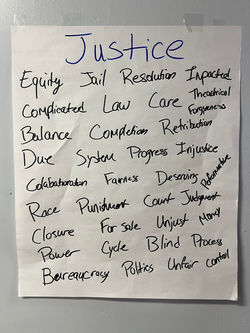 Justice
Equity Jail Resolution Impacted
Complicated Law Care Theatrical
Forgiveness
Balance Completion Retribution
Due System Progress Injustice
Colaboration Fairness Deserving
Performative
Race Punishment Court Judgment
Closure For sale Unjust Money
Power Cycle Blind Process
Bureaucracy Politics Unfair control